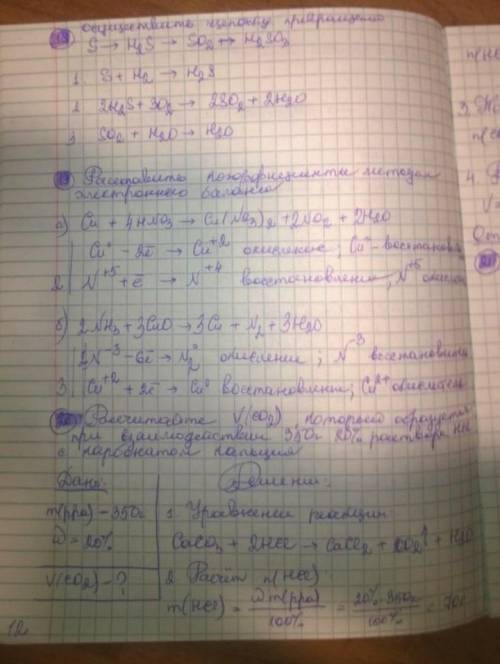 18 осуществить цепочку превращений
S → H2S → SO2 ↔ H2SO3
1. S + H2 → H2S
2. 2H2S + 3O2 → 2SO2 + 2H2O
3. SO2 + H2O →
19 Расставить коэффициенты методом
электронного баланса
а) Cu + 4HNO3 → Cu(NO3)2 + 2NO2 + 2H2O
Cu⁰ - 2ē → Cu+2 окисление; Cu⁰ - восстанови
2 | N+5 + ē → N+4 восстановление, N+5 окисли
б) 2NH3 + 3CuO → 3Cu + N2 + 3H2O
2N-3 - 6ē → N2⁰ окисление; N-3 восстановите
3 | Cu+2 + 2ē → Cu⁰ восстановление; Cu2+ окислитель
20 Рассчитайте V(CO2), который образуется
при взаимодействии 350г 20% раствора HCl
с карбонатом кальция
Дано:
m(рра) - 350г
W = 20%
V(CO2) - ?
Решение:
1. Уравнение реакции
CaCO3 + 2HCl → CaCl2 + CO2↑ + H2O
2. Расчёт n(HCl)
m(HCl) = W m(рра) / 100% = 20% · 350г / 100% = 70г
12
n(HC
4.
V=